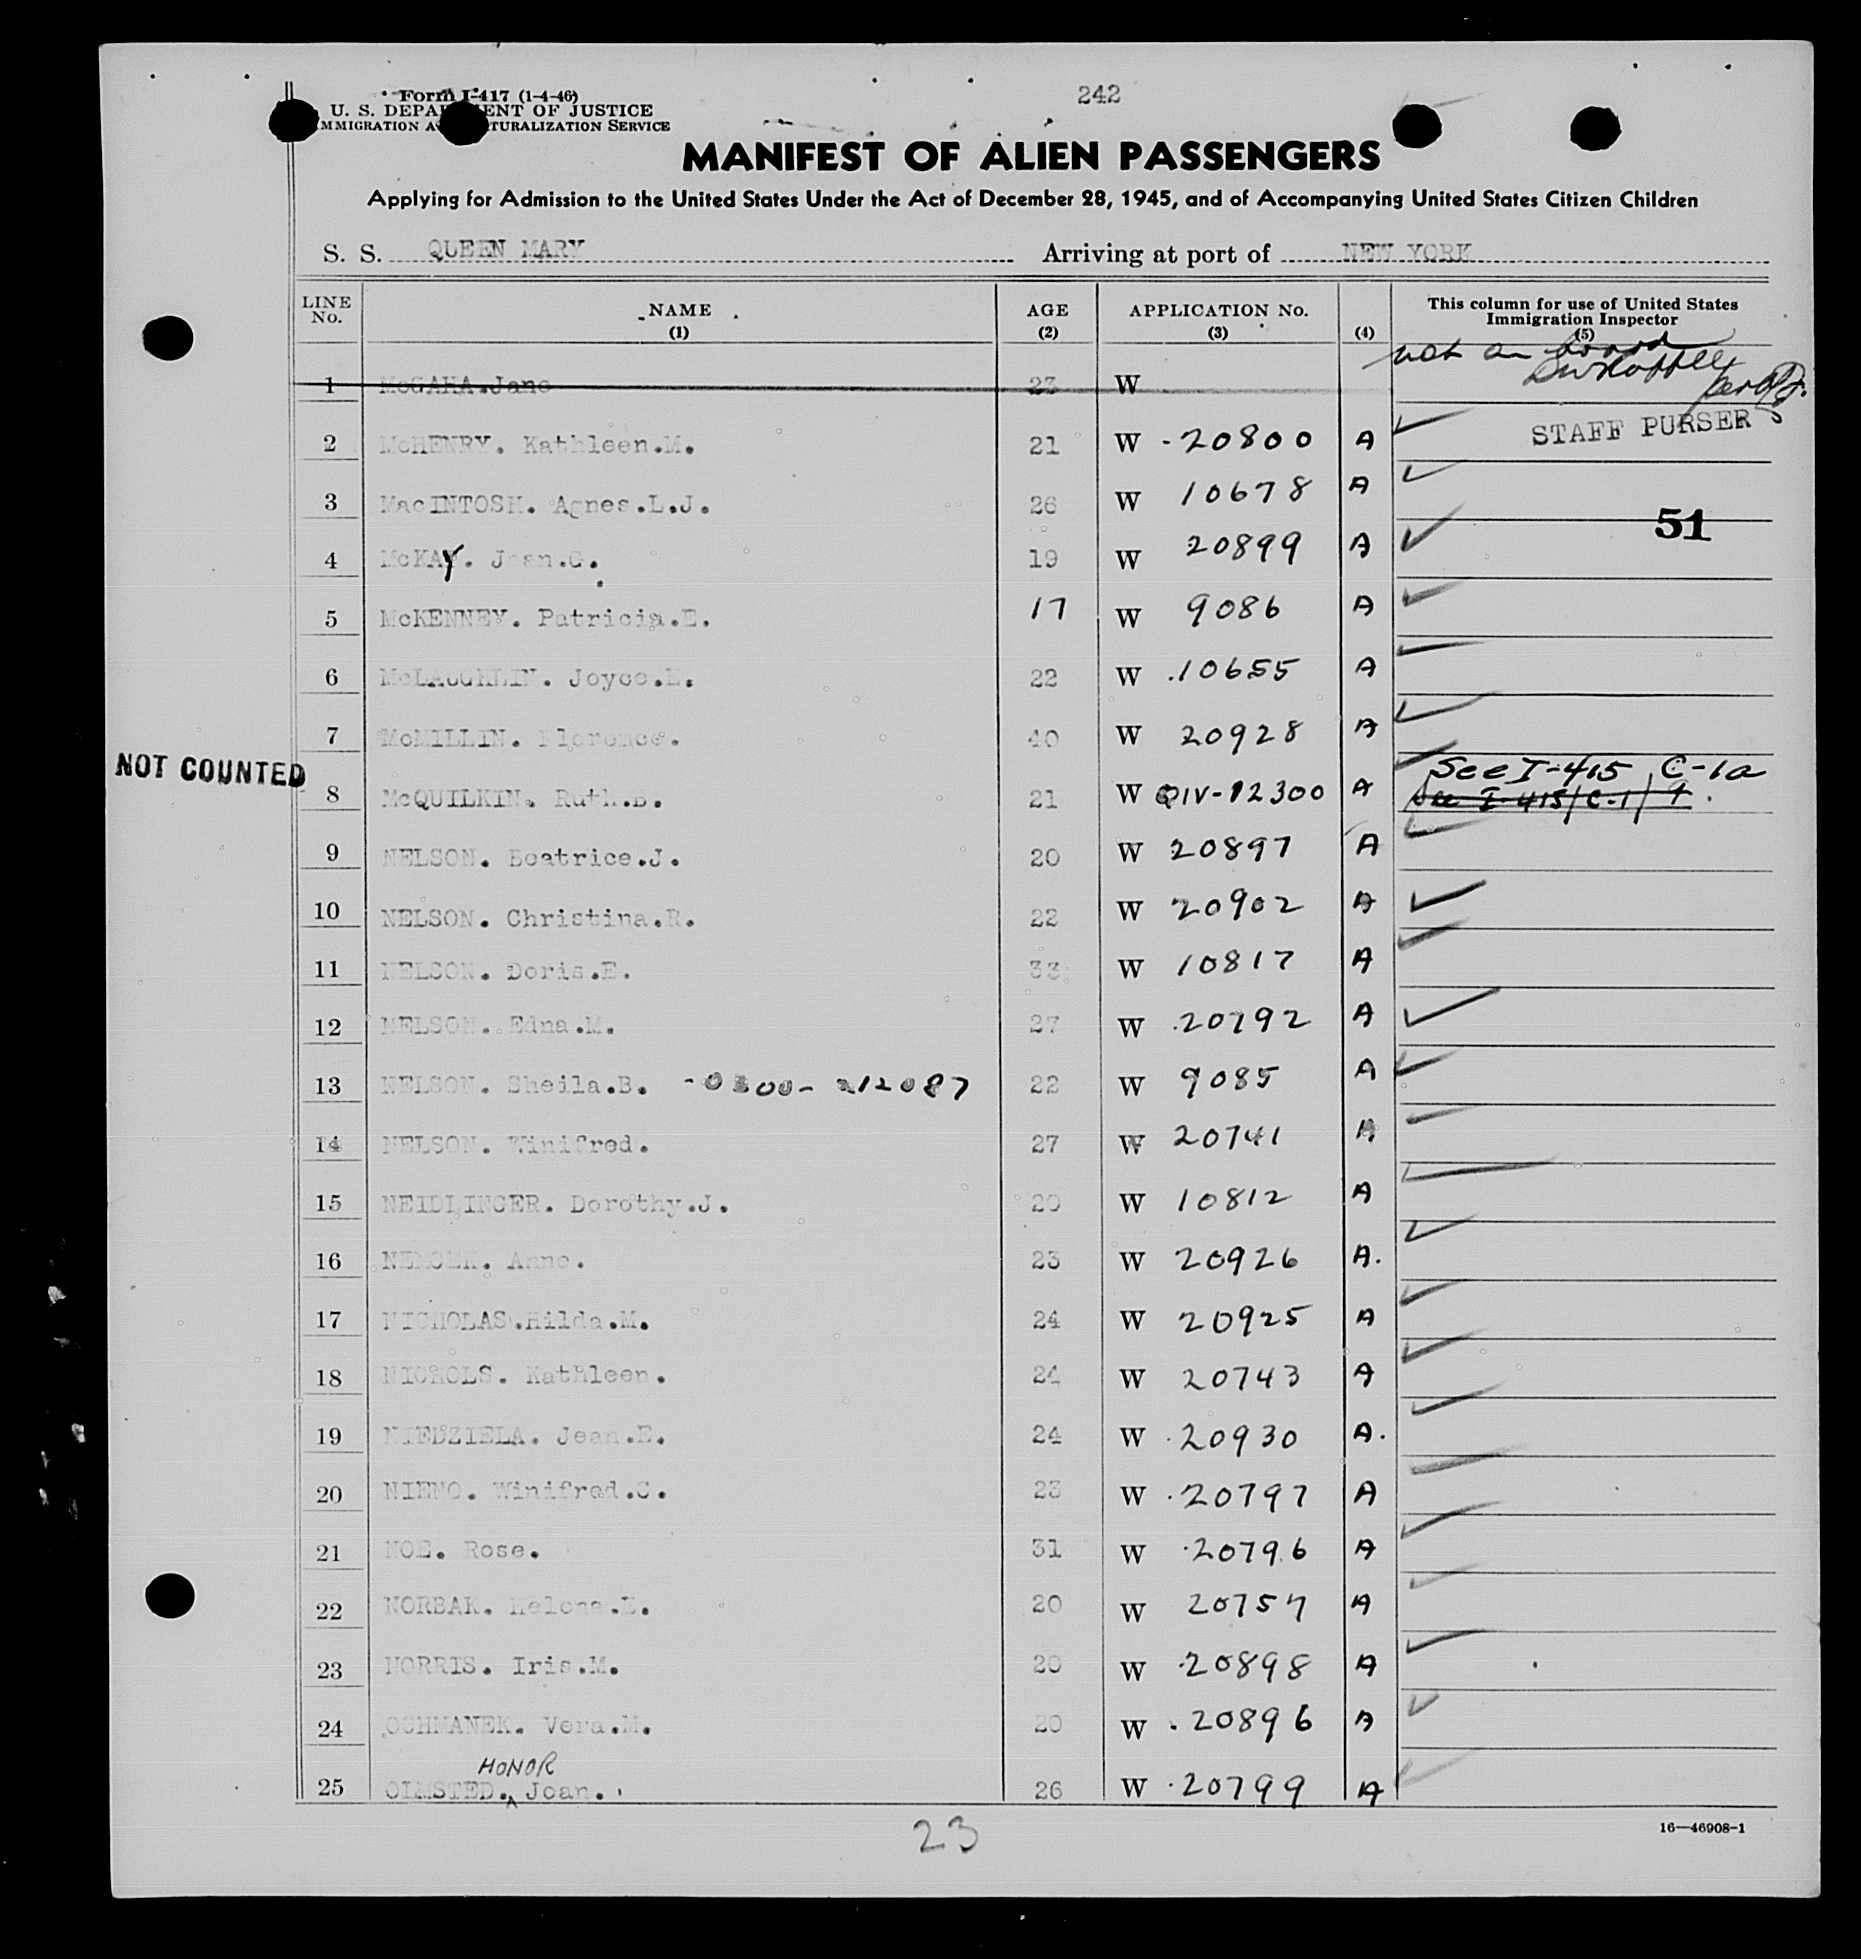 Form I-417 (1-4-46)
U. S. DEPARTMENT OF JUSTICE
IMMIGRATION AND NATURALIZATION SERVICE
242
MANIFEST OF ALIEN PASSENGERS
Applying for Admission to the United States Under the Act of December 28, 1945, and of Accompanying United States Citizen Children
S. S. QUEEN MARY Arriving at port of NEW YORK
LINE No. NAME (1) AGE (2) APPLICATION No. (3) (4) This column for use of United States Immigration Inspector (5)
not on board
1 McGAHA.Jane 23 W
STAFF PURSER
2 McHENRY. Kathleen.M. 21 W -20800 A
3 MacINTOSH. Agnes.L.J. 26 W 10678 A
51
4 McKAY. Jean.G. 19 W 20899 A
5 McKENNEY. Patricia.E. 17 W 9086 A
6 McLAUGHLIN. Joyce.E. 22 W .10655 A
7 McMILLIN. Florence. 40 W 20928 A
NOT COUNTED
8 McQUILKIN. Ruth.B. 21 W QIV-12300 A See I-415, C-1a
See I-415/C-1/9.
9 NELSON. Beatrice.J. 20 W 20897 A
10 NELSON. Christina.R. 22 W 20902 A
11 NELSON. Doris.E. 33 W 10817 A
12 NELSON. Edna.M. 27 W .20792 A
13 NELSON. Sheila.B. -0300- 212087 22 W 9085 A
14 NELSON. Winifred. 27 W 20741 A
15 NEIDLINGER. Dorothy.J. 20 W 10812 A
16 NEMCEK. Anne. 23 W 20926 A.
17 NICHOLAS.Hilda.M. 24 W 20925 A
18 NICHOLS. Kathleen. 24 W 20743 A
19 NIEDZIELA. Jean.E. 24 W .20930 A.
20 NIEMO. Winifred.C. 23 W .20797 A
21 NOE. Rose. 31 W .20796 A
22 NORBAK. Helena.E. 20 W 20757 A
23 NORRIS. Iris.M. 20 W .20898 A
24 OCHMANEK. Vera.M. 20 W .20896 A
HONOR
25 OLMSTED. Joan. 26 W .20799 A
23
16—46908-1